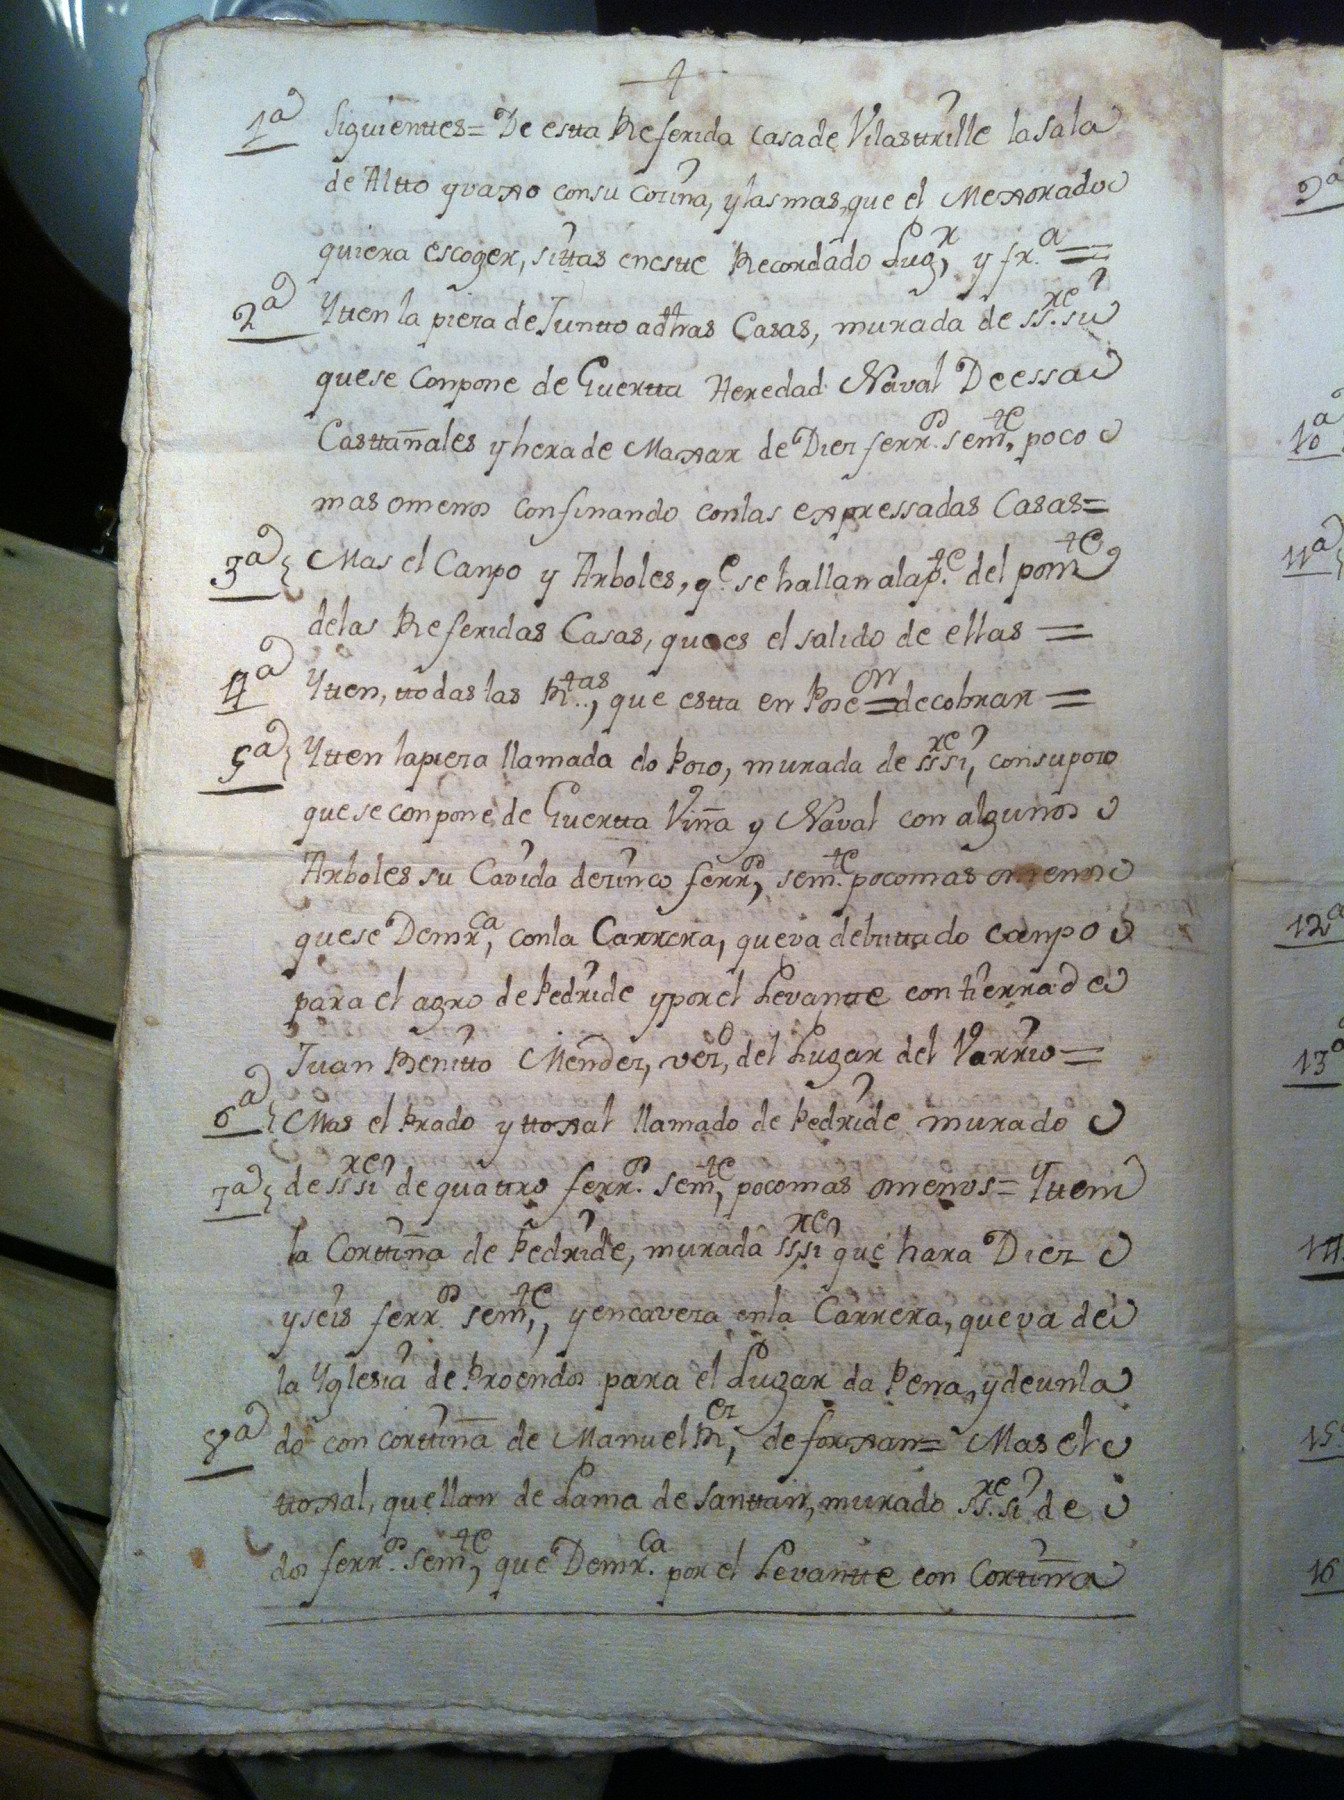 1ª Siguienttes= De estta Referida casa de Vilasttrille la sala
de Altto y vaxo con su cozina, y las mas, que el Mexorado
quiera escoger, sittas en este Recordado Lugr, y fra. =
2ª Yten la pieza de Juntto a dhas Casas, murada de ssre. su
que se Conpone de Guertta Heredad Naval Deessa
Casttañales y hera de Maxar de Diez ferros. semte, poco
mas o menos confinando con las expressadas Casas=
3ª Mas el Canpo y Arboles, qe. se hallan a la pte. del ponte
de las Referidas Casas, que es el salido de ellas =
4ª Ytten, ttodas las Rtas.., que estta en Poseon= de cobrar =
5ª Ytten la pieza llamada do Pozo, murada de ssre si, con su pozo
que se conpone de Guertta Viña y Naval con algunos
Arboles su Cavida de zinco ferros, semte. poco mas o menos
que se Demrca, con la Carrera, que va de Canpo
para el agro de Pedride y por el Levantte con tierra de
Juan Benitto Mendez, vezo, del Lugar del Varrio=
6ª Mas el Prado y ttoxal llamado de Pedride murado
7ª de ssre si de quattro ferros. semte, poco mas o menos= Yttem
la Corttiña de Pedride, murada ssre si que hara Diez
y seis ferros. semte,, y en caveza en la Carrera, que va de
la Yglesia de Proendos para el Lugar da Pena, y de un la
8ª do con corttiña de Manuel Rez, de forxan= Mas el
ttoxal, que llan de Lama de santtan, murado ssre. si de
dos ferros. semte, que Demrca. por el Levantte con Corttiña